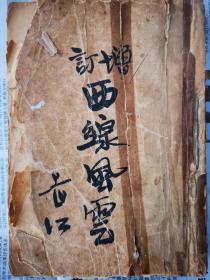 增訂
西線風雲
長江